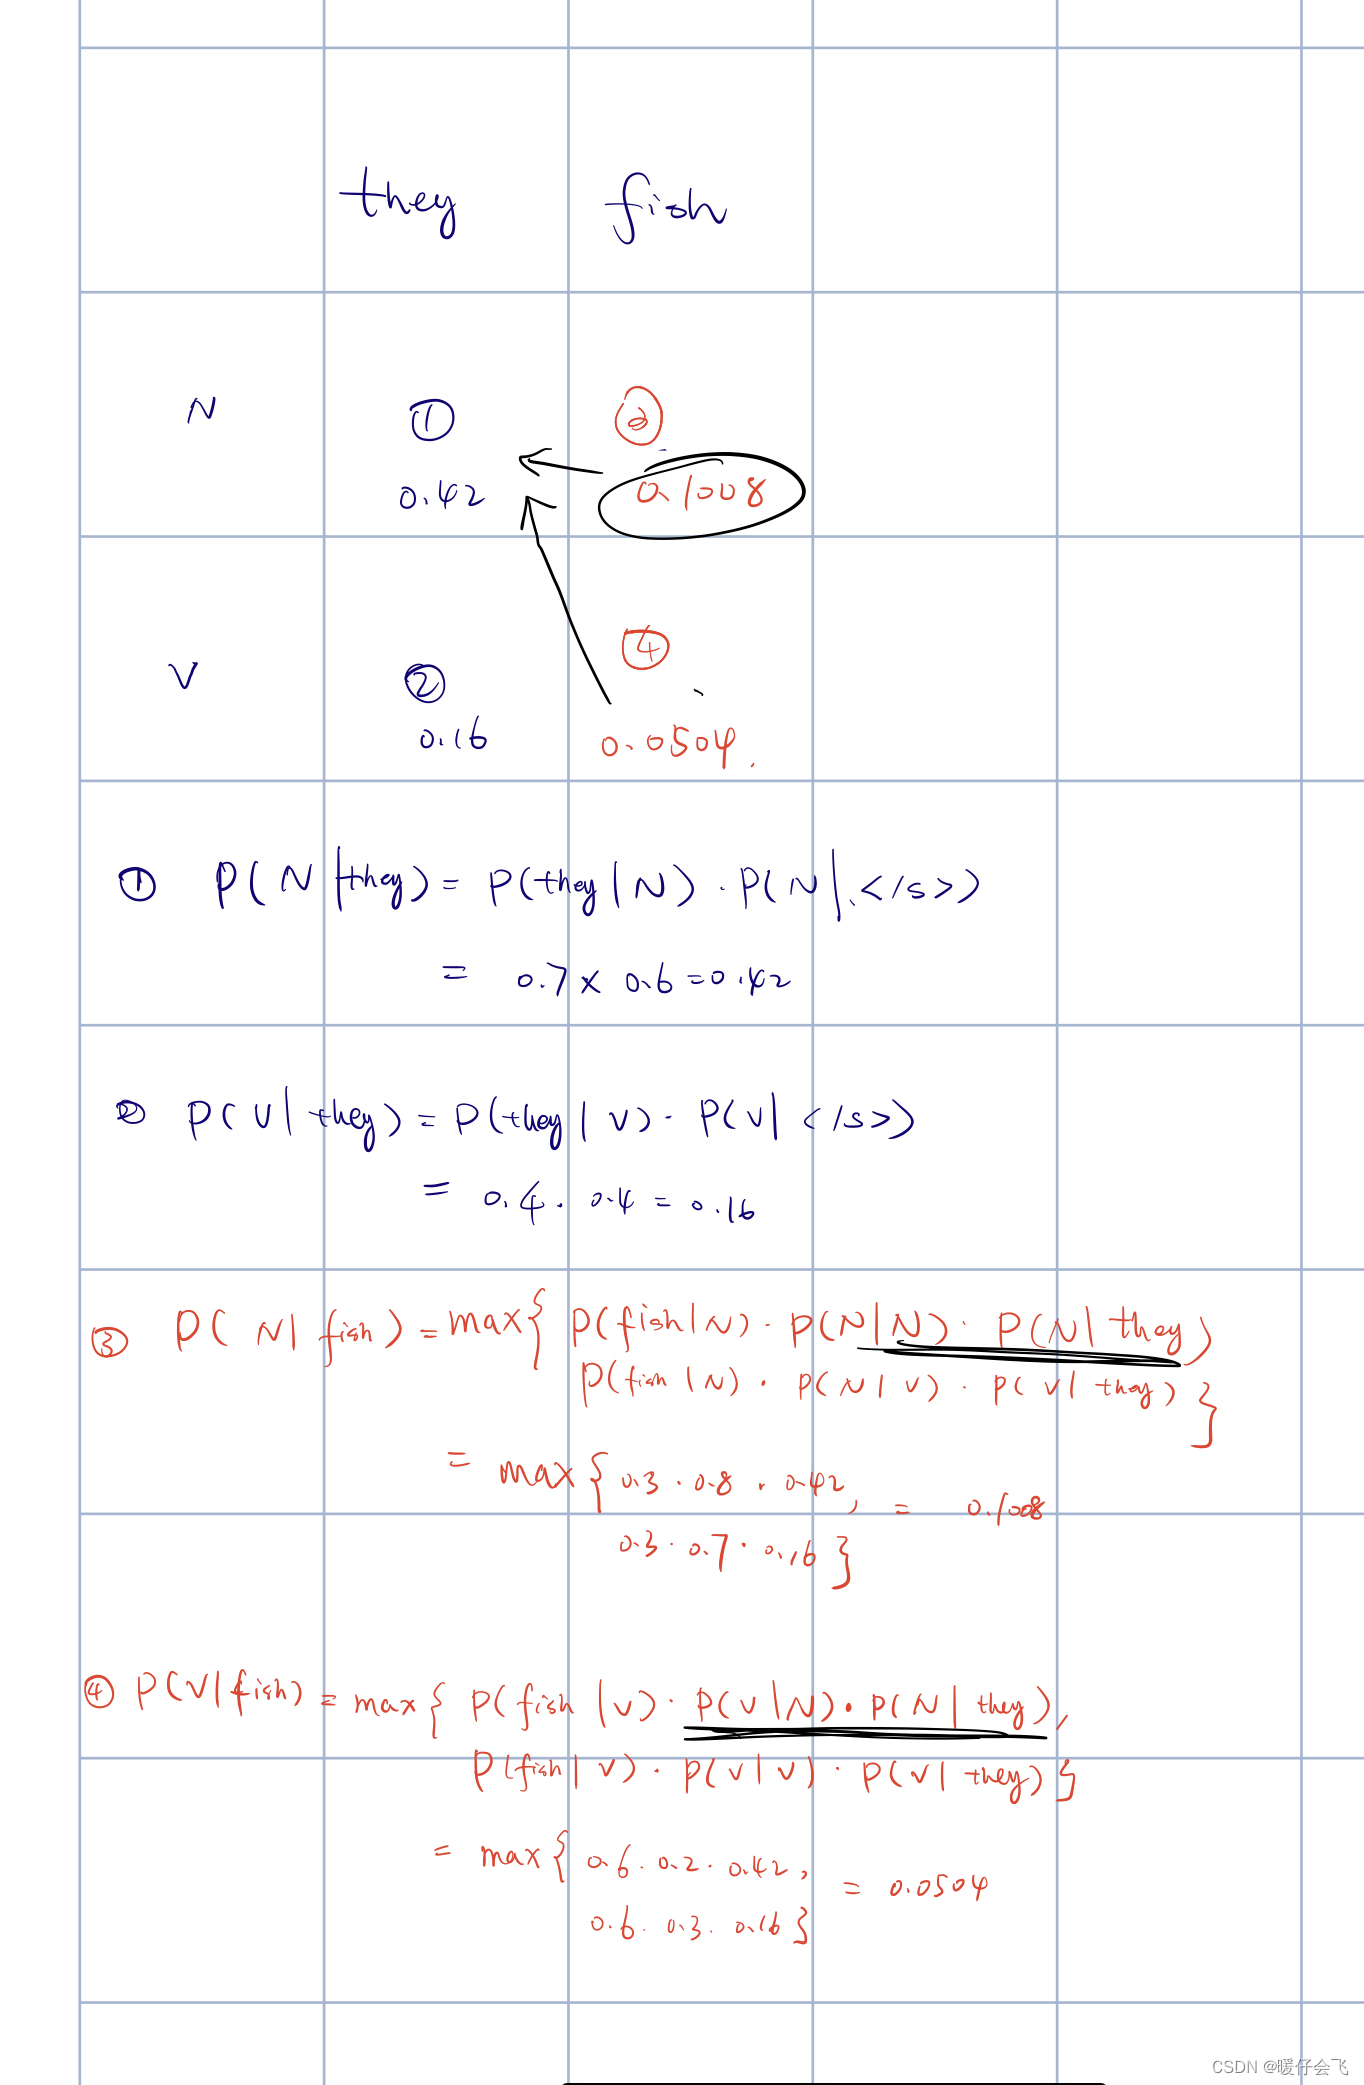 they fish
N ① ③
0.42 0.1008
V ② ④
0.16 0.0504.
① P(N|they) = P(they|N) · P(N|.</s>)
= 0.7 × 0.6 = 0.42
② P(V|they) = P(they|V) · P(V|</s>)
= 0.4 · 0.4 = 0.16
③ P(N|fish) = max{ P(fish|N) · P(N|N) · P(N|they)
P(fish|N) · P(N|V) · P(V|they) }
= max{ 0.3 · 0.8 · 0.42, = 0.1008
0.3 · 0.7 · 0.16 }
④ P(V|fish) = max{ P(fish|V) · P(V|N) · P(N|they),
P(fish|V) · P(V|V) · P(V|they) }
= max{ 0.6 · 0.2 · 0.42, = 0.0504
0.6 · 0.3 · 0.16 }
CSDN @暖仔会飞